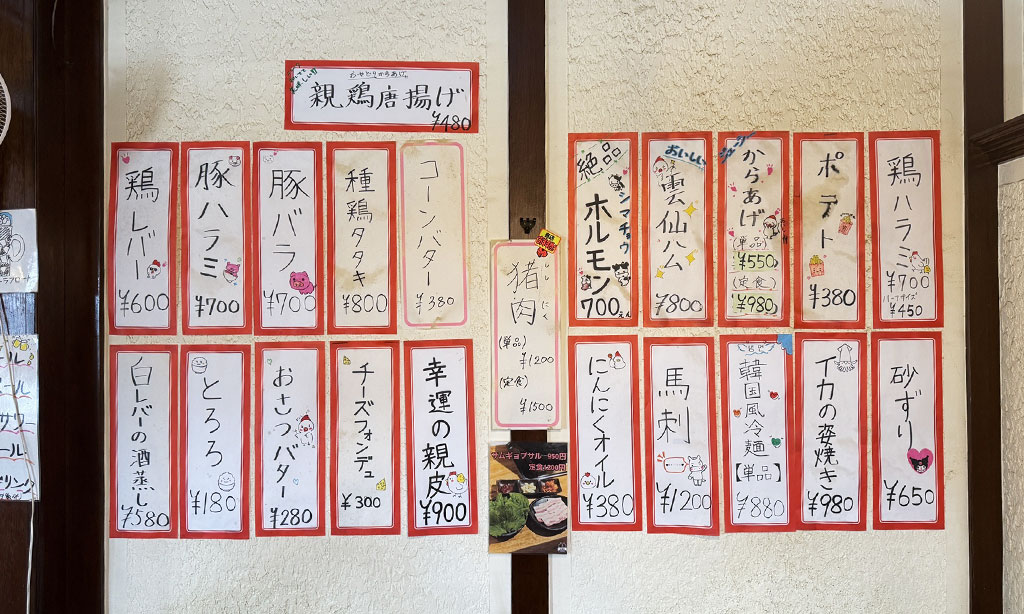 おやどりからあげ
親鶏唐揚げ
¥480
鶏レバー
¥600
豚ハラミ
¥700
豚バラ
¥700
種鶏タタキ
¥800
コーンバター
¥380
白レバーの酒蒸し
¥580
とろろ
¥180
おさつバター
¥280
チーズフォンデュ
¥300
幸運の親皮
¥900
猪肉
しし
にく
(単品)
¥1200
(定食)
¥1500
サムギョプサル 950円
定食1200円
絶品
シマチョウ
ホルモン
700えん
おいしい
雲仙ハム
¥800
ジューシー
からあげ
(単品)
¥550
(定食)
¥980
ポテト
¥380
鶏ハラミ
¥700
ハーフサイズ
¥450
にんにくオイル
¥380
馬刺
¥1200
韓国風冷麺
【単品】
¥880
イカの姿焼き
¥980
砂ずり
¥650